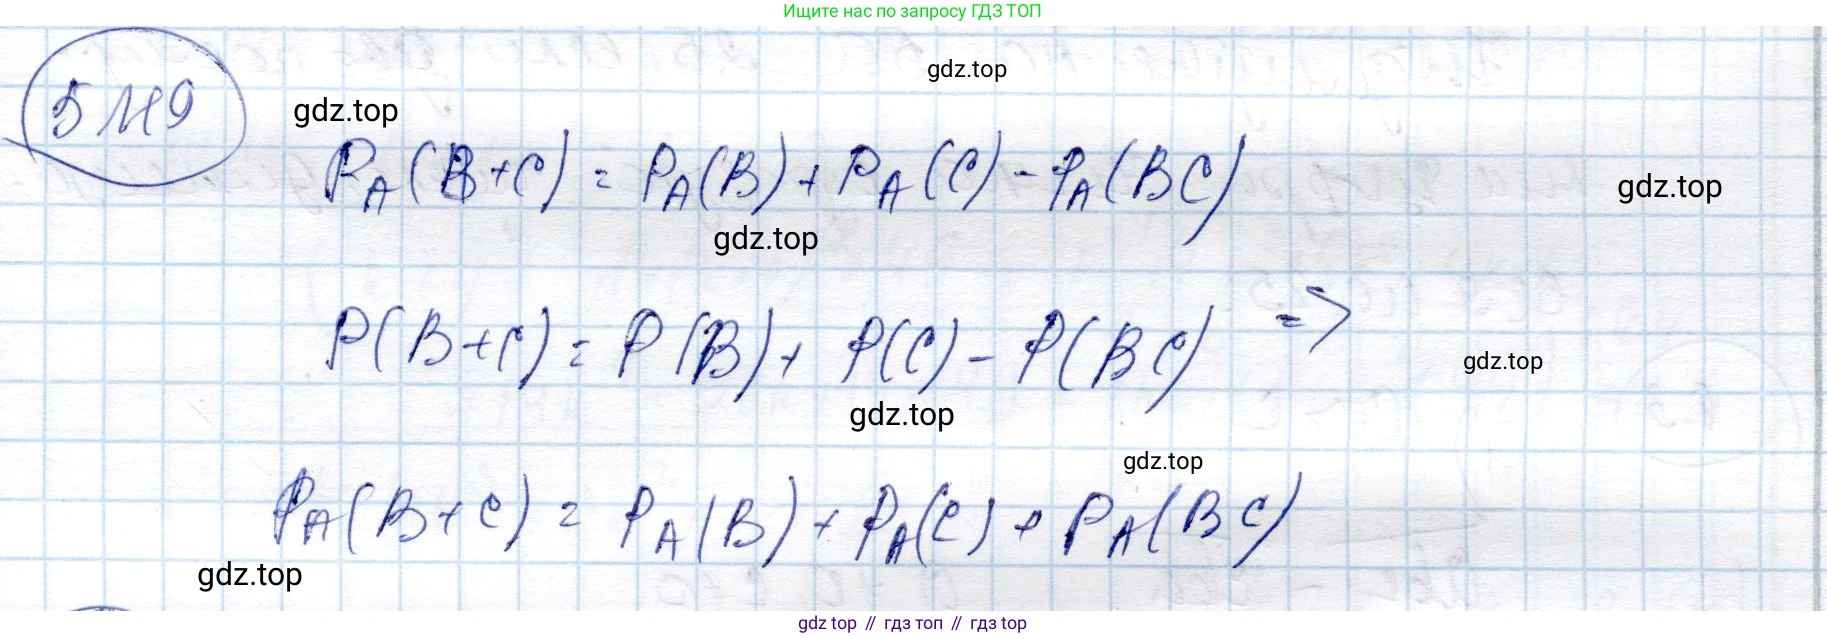 Ищите нас по запросу ГДЗ ТОП
gdz.top
5.119 gdz.top
P_A(B+C) = P_A(B) + P_A(C) - P_A(BC)
gdz.top
gdz.top
P(B+C) = P(B) + P(C) - P(BC) =>
gdz.top
gdz.top
gdz.top
P_A(B+C) = P_A(B) + P_A(C) + P_A(BC)
gdz.top
gdz top // гдз топ // гдз top